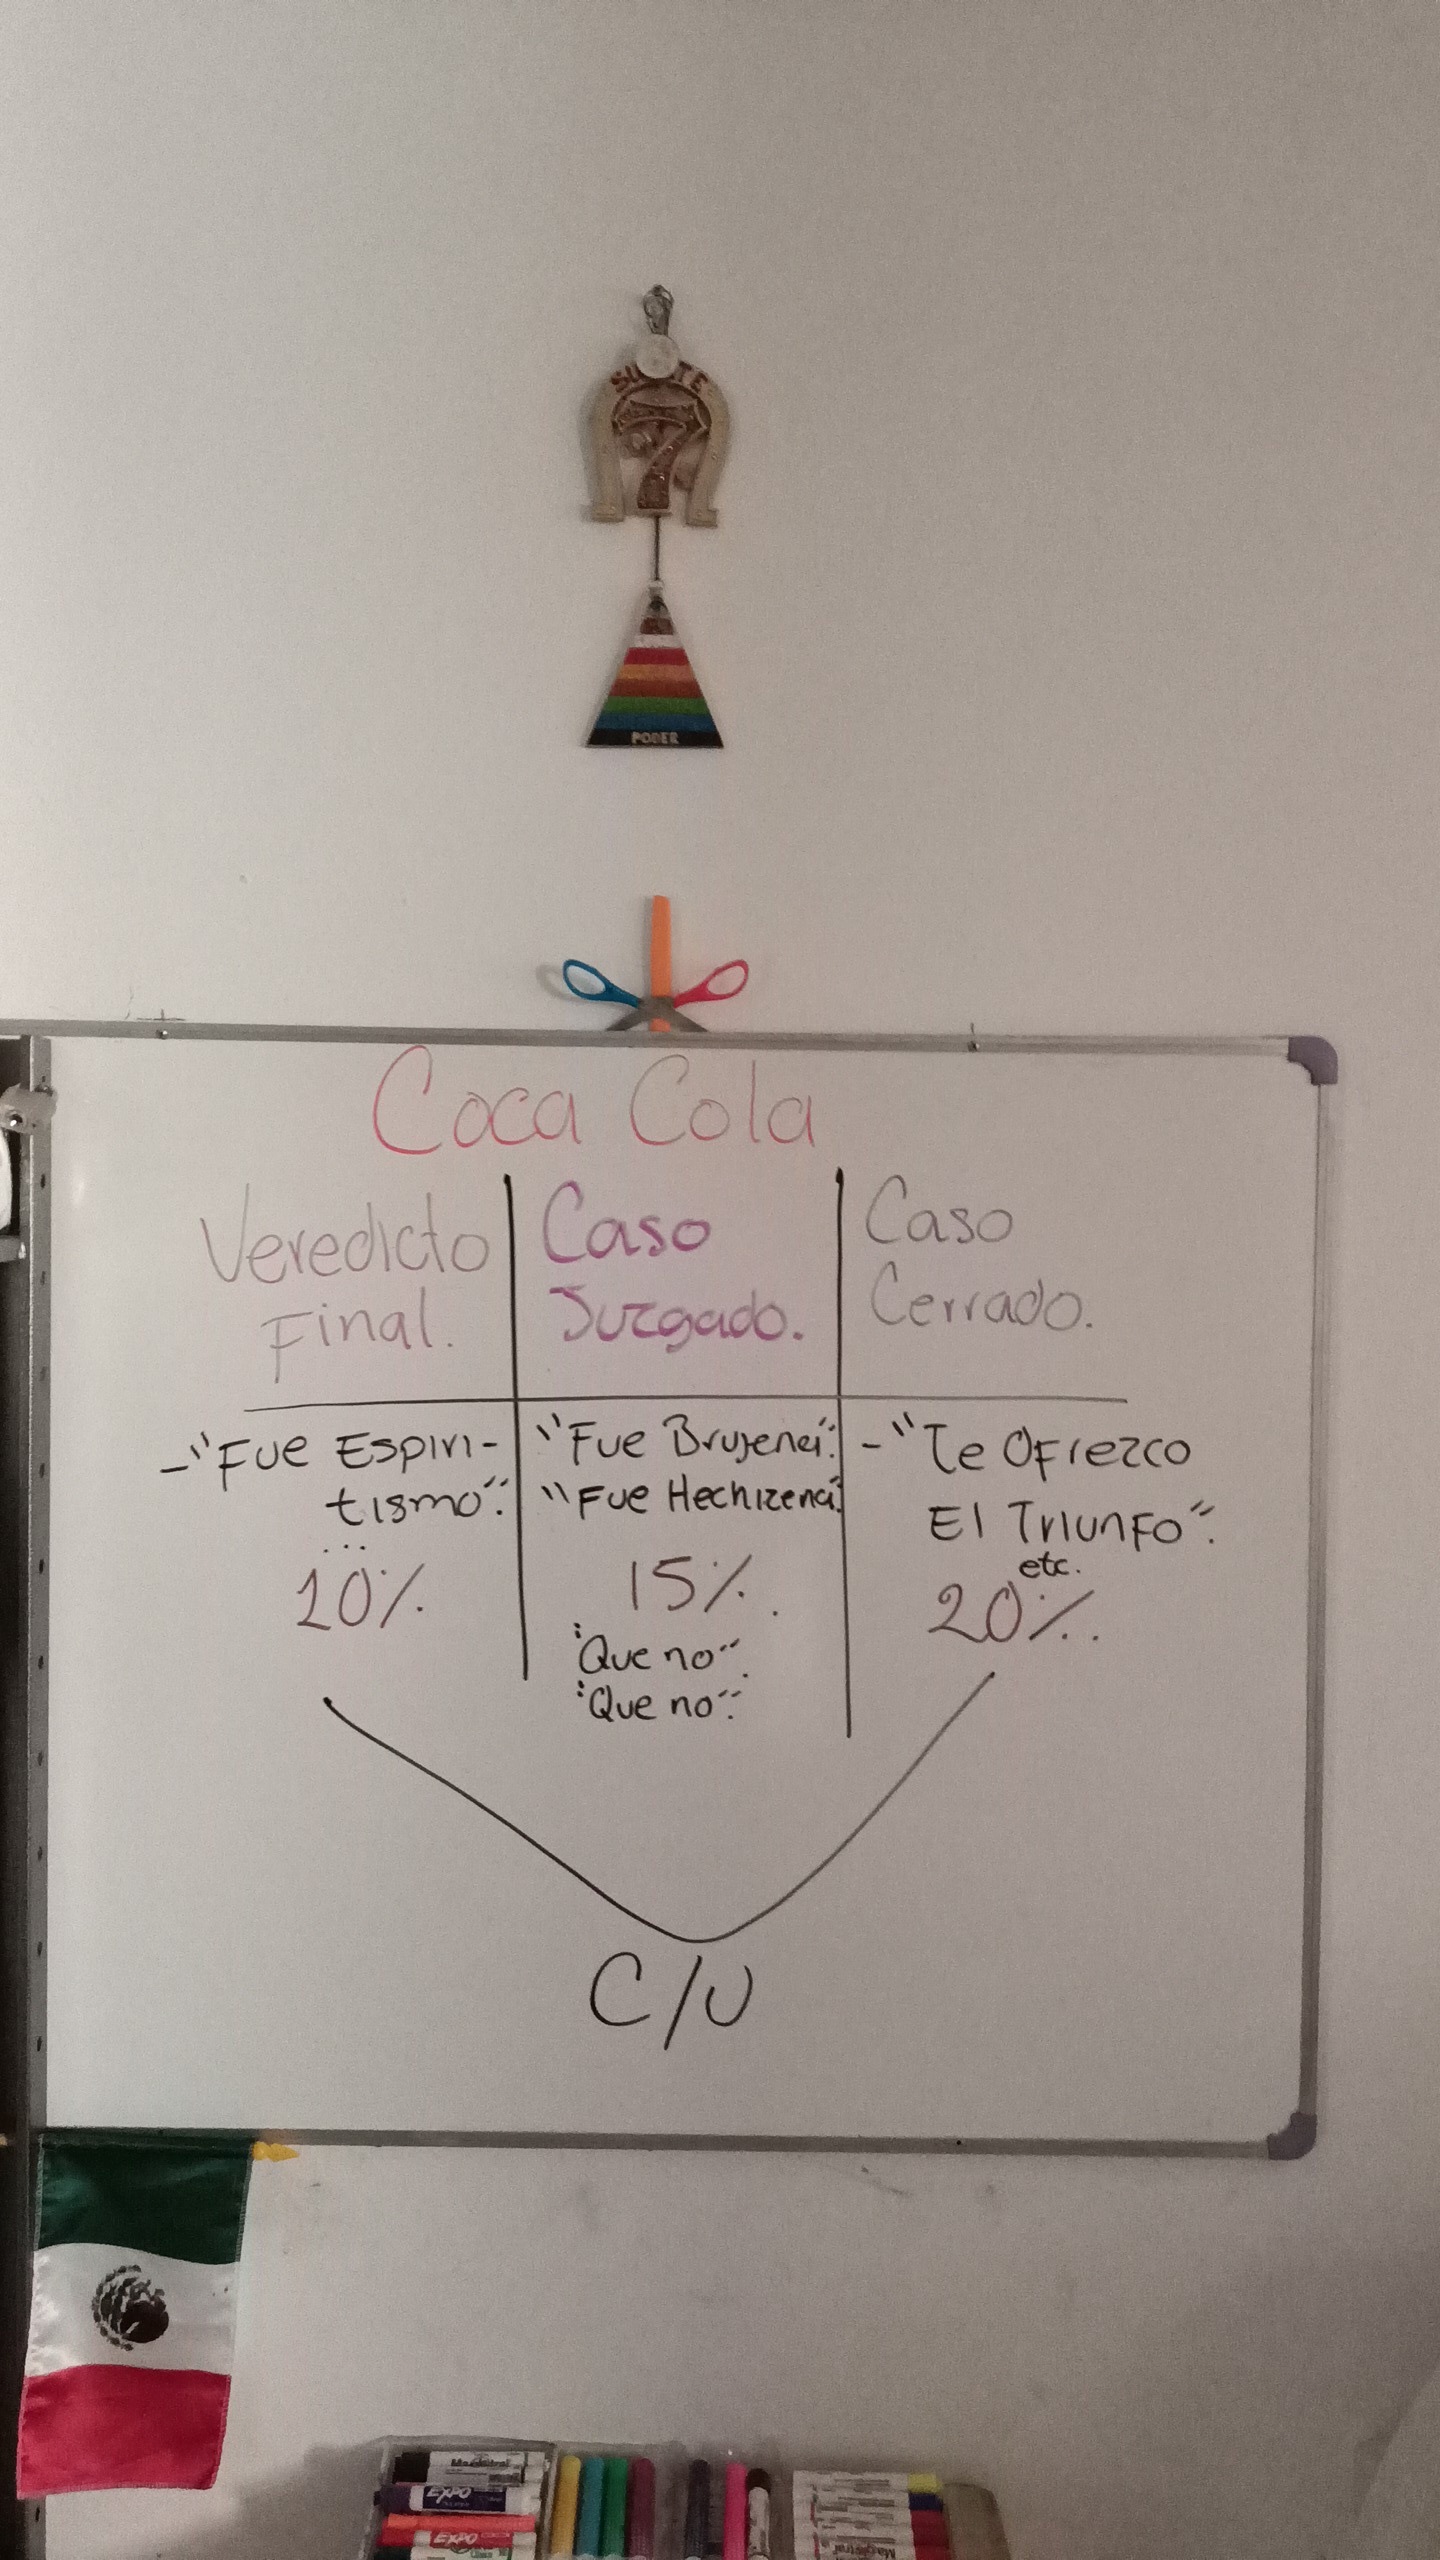 SUERTE
7
PODER
Coca Cola
Veredicto
Final.
Caso
Juzgado.
Caso
Cerrado.
-"Fue Espiri-
tismo".
...
10%
"Fue Brujería".
"Fue Hechizería".
15%.
"Que no".
"Que no".
-"Te Ofrezco
El Triunfo".
etc.
20%.
C/U
Magistral
EXPO
EXPO
Magistral